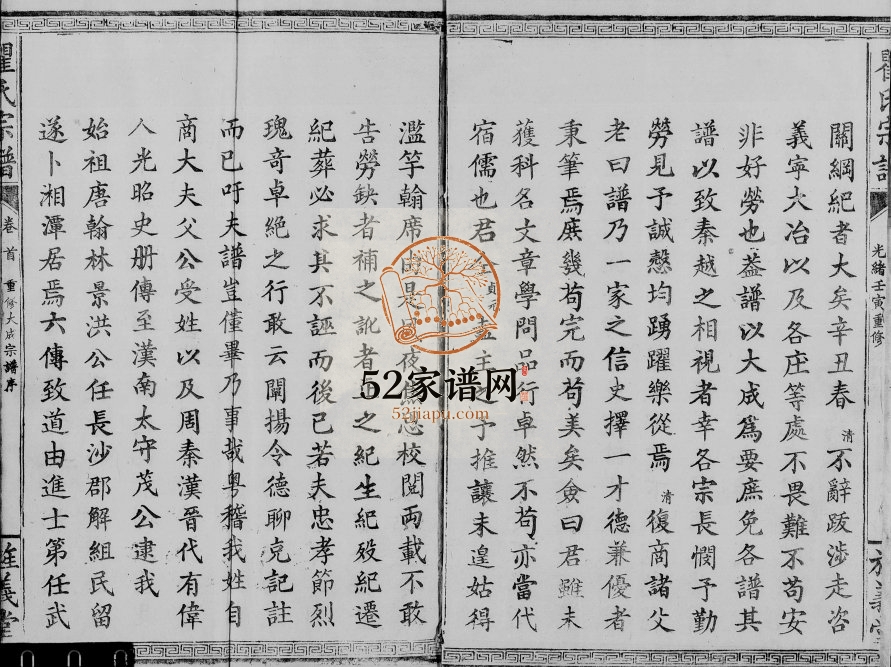 光緒壬寅重修
關綱紀者大矣辛丑春清不辭跋涉走咨
義寧大冶以及各庄等處不畏難不苟安
非好勞也葢譜以大成為要庶免各譜其
譜以致秦越之相視者幸各宗長憫予勤
勞見予誠慤均踴躍樂從焉清復商諸父
老曰譜乃一家之信史擇一才德兼優者
秉筆焉庶幾苟完而苟美矣僉曰君雖未
獲科名文章學問品行卓然不苟亦當代
宿儒也君主予推讓未遑姑得
濫竽翰席是夜校閱兩載不敢
告勞缺者補之訛者之紀生紀歿紀遷
紀葬必求其不誣而後已若夫忠孝節烈
瑰奇卓絕之行敢云闡揚令德聊克記註
而已吁夫譜豈僅畢乃事哉粵稽我姓自
商大夫父公受姓以及周秦漢晉代有偉
人光昭史册傳至漢南太守茂公逮我
始祖唐翰林景洪公任長沙郡解組民留
遂卜湘潭居焉六傳致道由進士第任武
瞿氏宗譜
卷首
重修大成宗譜序
52家谱网
52jiapu.com